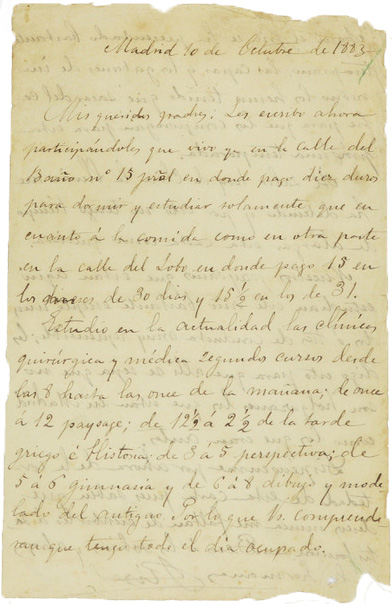 Madrid 10 de Octubre de 1883
Mis queridos padres: Les escribo ahora
participándoles que vivo ya en la calle del
Baño nº 15 pral en donde pago diez duros
para dormir y estudiar solamente, que en
cuanto á la comida como en otra parte
en la calle del Lobo en donde pago 15 en
los meses de 30 dias y 15 ½ en los de 31.
Estudio en la actualidad las clínicas
quirúrgica y médica segundos cursos desde
las 8 hasta las once de la mañana; de once
á 12 paysage; de 12½ á 2½ de la tarde
griego é Historia; de 3 á 5 perspectiva; de
5 á 6 gimnasia y de 6 á 8 dibujo y mode
lado del antiguo. Por lo que Vs. comprende
ran que tengo todo el dia ocupado.